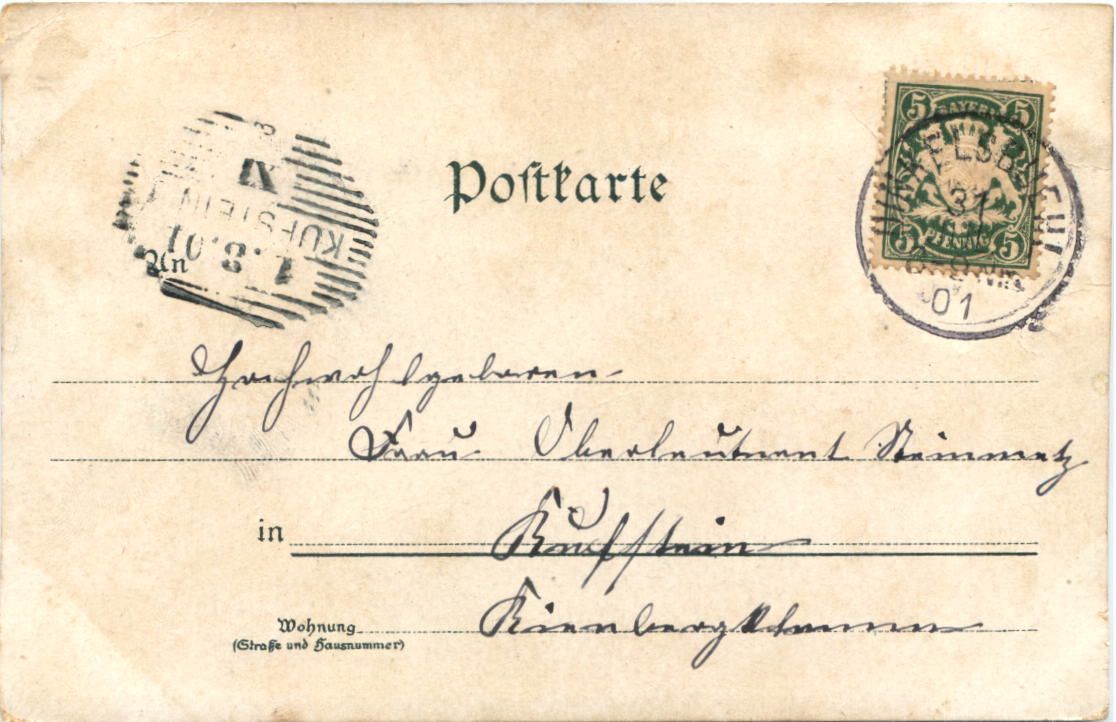 Postkarte
5 BAYERN 5
5 PFENNIG 5
DINKELSBUEHL
31
8
01
KUFSTEIN
1.8.01
An
Hochwohlgeboren
Frau Oberleutnant Steinmetz
in Kufstein
Wohnung Kienbergklamm
(Straße und Hausnummer)